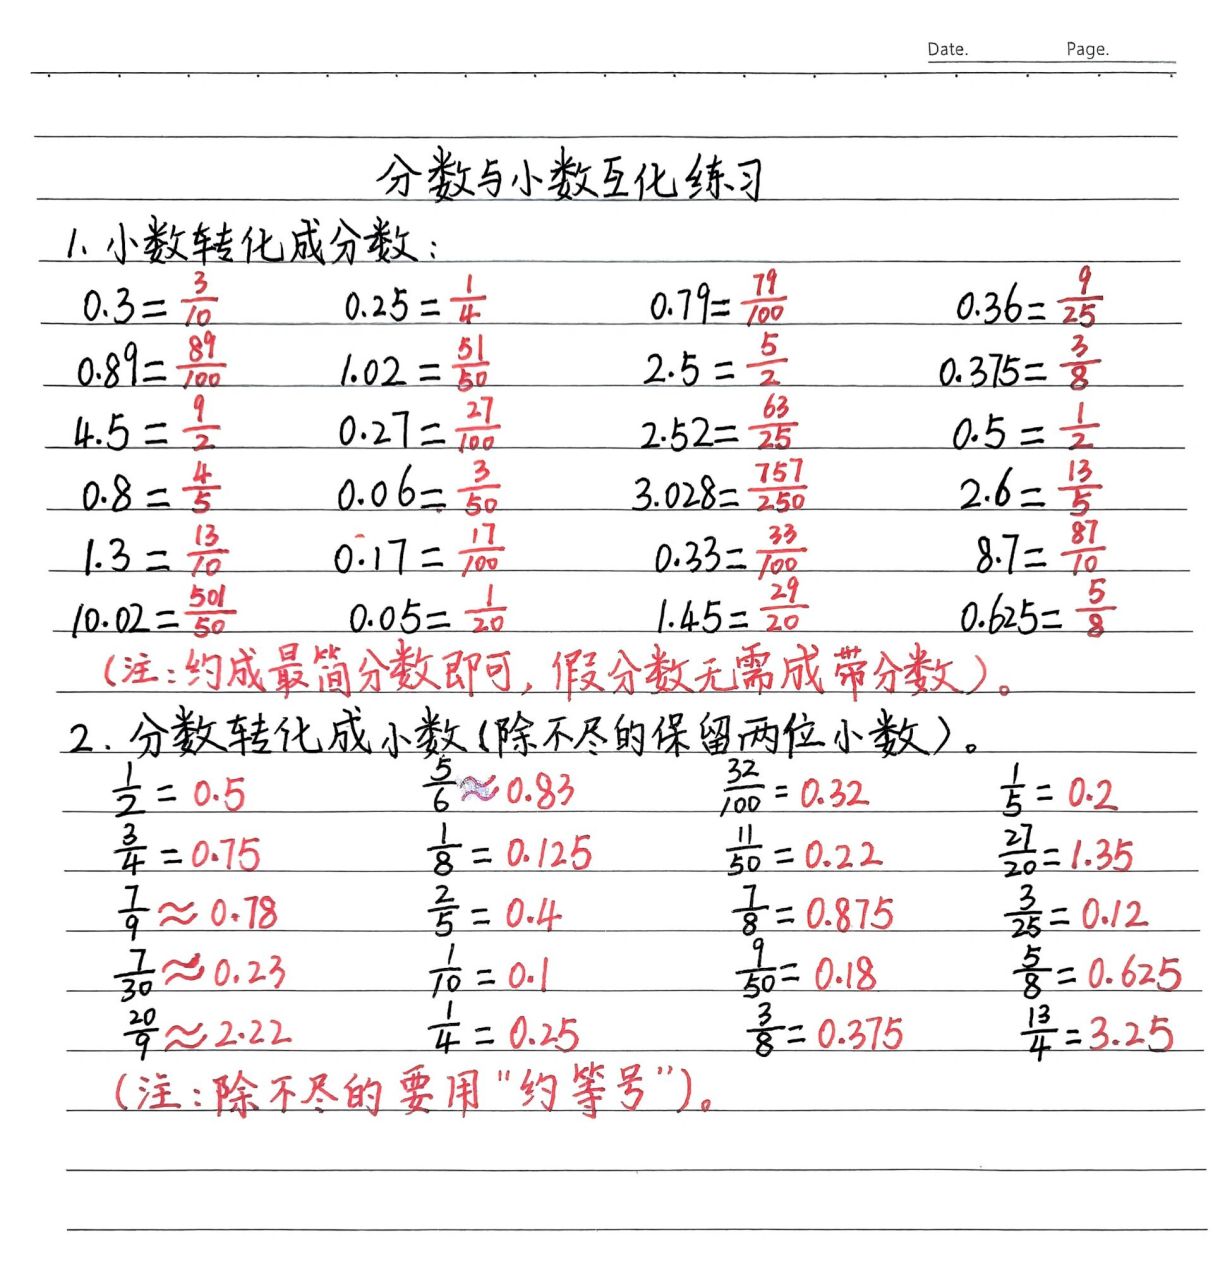 Date. Page.
分数与小数互化练习
1. 小数转化成分数：
0.3=3/10 0.25=1/4 0.79=79/100 0.36=9/25
0.89=89/100 1.02=51/50 2.5=5/2 0.375=3/8
4.5=9/2 0.27=27/100 2.52=63/25 0.5=1/2
0.8=4/5 0.06=3/50 3.028=757/250 2.6=13/5
1.3=13/10 0.17=17/100 0.33=33/100 8.7=87/10
10.02=501/50 0.05=1/20 1.45=29/20 0.625=5/8
（注：约成最简分数即可，假分数无需成带分数）。
2. 分数转化成小数（除不尽的保留两位小数）。
1/2=0.5 5/6≈0.83 32/100=0.32 1/5=0.2
3/4=0.75 1/8=0.125 11/50=0.22 27/20=1.35
7/9≈0.78 2/5=0.4 7/8=0.875 3/25=0.12
7/30≈0.23 1/10=0.1 9/50=0.18 5/8=0.625
20/9≈2.22 1/4=0.25 3/8=0.375 13/4=3.25
（注：除不尽的要用"约等号"）。